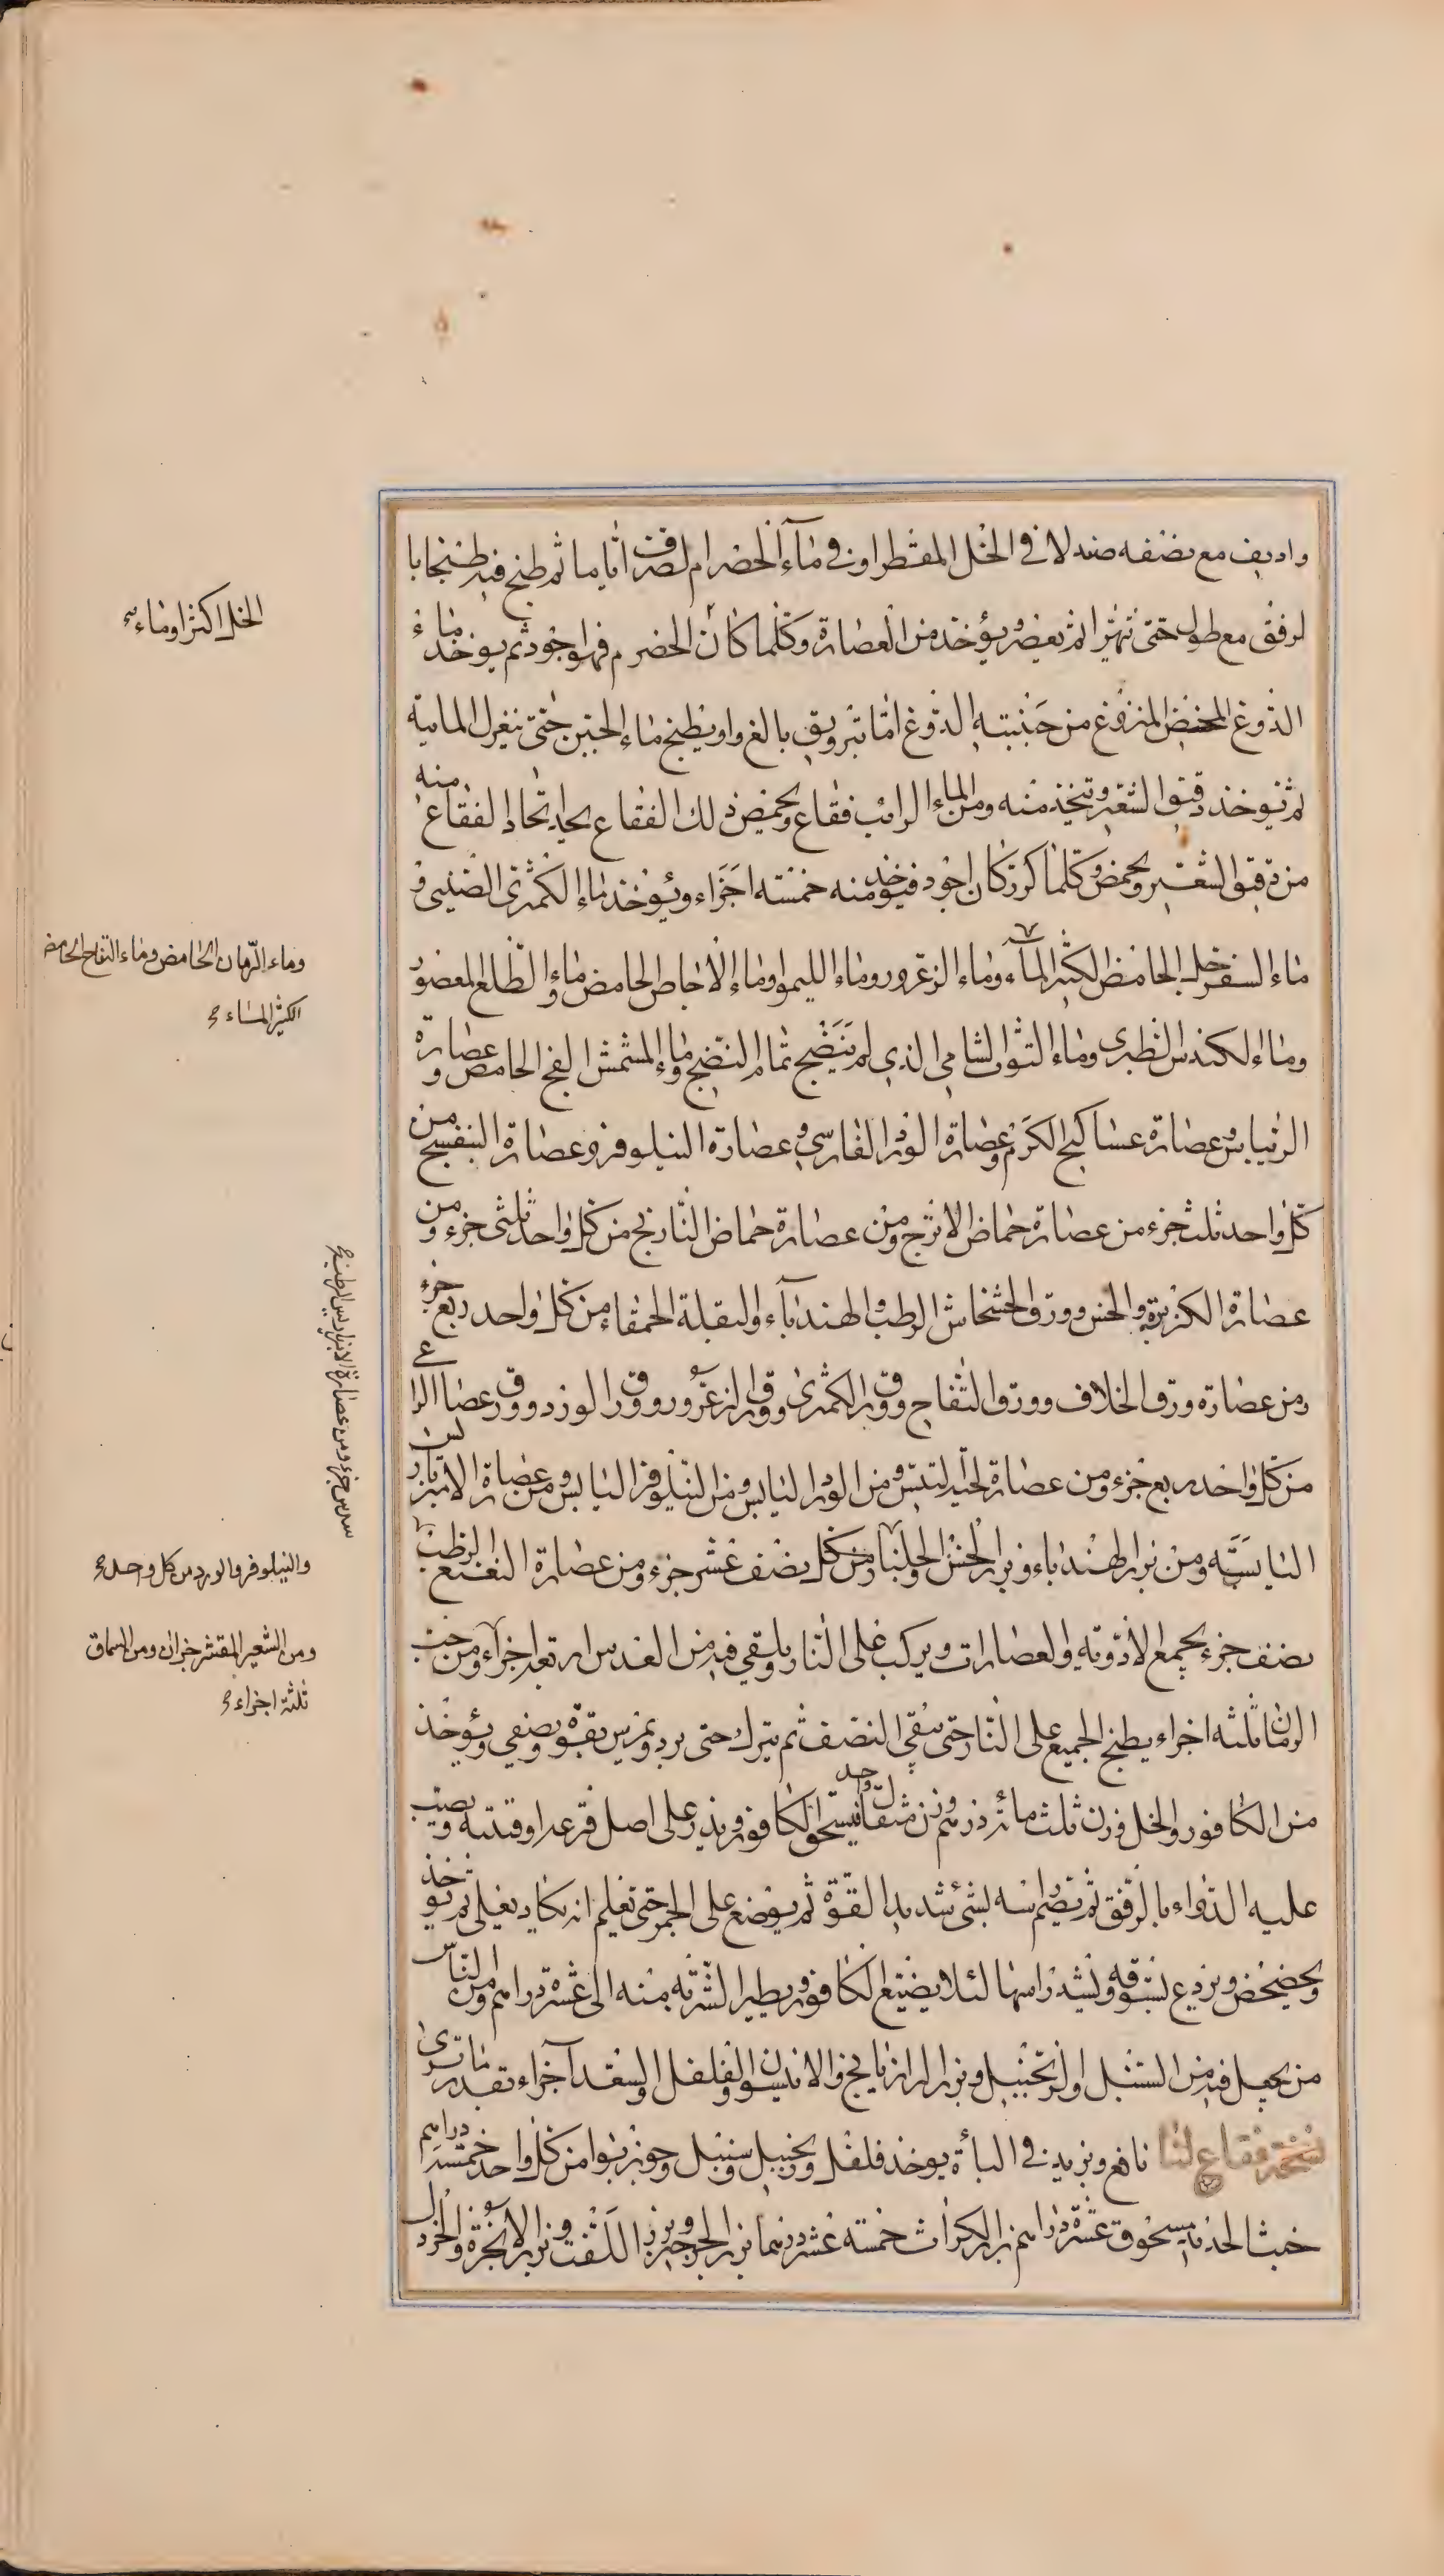 واديف مع نصفه صندلا في الخل المقطر او في ماء الحضرام لصرف اياما ثم طبخ فيه طبخا با
لرفق مع طول حتى تهرا ثم يعصر ويؤخذ من العصارة وكلما كان الحضرم فهو اجود ثم يوخذ ماء
الدوغ المخيض المنزوع من جنبيته الدوغ اما بترويق بالغ واو يطبخ ماء الجبن حتى تنعزل المايية
ثم يوخذ دقيق الشعير وتتخذ منه ومن الماء الرائب فقاع ويحمض ذلك الفقاع يحد اتخاذ الفقاع منه
من دقيق الشعير ويحمض وكلما كرر كان اجود فيوخذ منه خمسة اجزاء ويؤخذ ماء الكمثرى الصيني و
ماء السفرجل الحامض الكثير الماء وماء الزعرور وماء الليمو وماء الاجاص الحامض وماء الطلع المعصور
وماء الكندس الطبرى وماء التوت الشامي الذي لم ينضج تمام النضج وماء المشمش الفج الحامض وعصارة
الريباس وعصارة عساكيج الكرم وعصارة الورد الفارسي وعصارة النيلوفر وعصارة البنفسج من
كل واحد ثلث جزء من عصارة حماض الاترج ومن عصارة حماض النارنج من كل واحد ثلثى جزء ومن
عصارة الكزبرة والخس وورق الخشخاش الرطب والهندباء والبقلة الحمقاء من كل واحد ربع جزء
ومن عصارة ورق الخلاف وورق التفاح وورق الكمثرى وورق الزعرور وورق الورد وورق عصا الراعى
من كل واحد ربع جزء ومن عصارة لحية التيس ومن الورد اليابس ومن النيلوفر اليابس ومن عصارة الامبر باريس
اليابسة ومن بزر الهندباء وبزر الخس والجلنار من كل نصف عشر جزء ومن عصارة النعنع الرطب
نصف جزء يجمع الادوية والعصارات ويركب على النار ويلقى فيه من العدس اربعة اجزاء ومن حب
الرمان ثلثه اجزاء يطبخ الجميع على النار حتى يبقى النصف ثم يترك حتى يبرد ويمرس بقوة ويصفى ويؤخذ
من الكافور والخل وزن ثلث مائة درهم وزن مثقال واحد فيسحق الكافور ويذر على اصل قرعة او قنينة ويصب
عليه الدواء بالرفق ثم يصم راسه بشئ شديد القوة ثم يوضع على الجمر حتى تعلم انه يكاد يغلى ثم يوخذ
ويخضخض ويردع بسوقه ويشد راسها لئلا يضيع الكافور ويطير الشربة منه الى عشرة دراهم ومن الناس
من يجعل فيه من السنبل اوالزنجبيل وبزر الرازيانج والانيسون والفلفل والسعد اجزاء بقدر ما ترى
نسخة فقاع لنا نافع ويزيد في الباءة يوخذ فلفل وزنجبيل وسنبل وجوزبوا من كل واحد خمسة دراهم
خبث الحديد مسحوق عشرة دراهم بزر الكراث خمسة عشر درهما بزر الجرجير وبزر اللفت وبزر الانجرة والخردل
الخل اكثر او ماء
وماء الرمان الحامض وماء التفاح الحامض
الكثير الماء
سدس جزء ومن عصارة الانبرباريس الرطب
والنيلوفر والورد من كل واحد
ومن الشعير المقشر جزان ومن السماق
ثلثة اجزاء